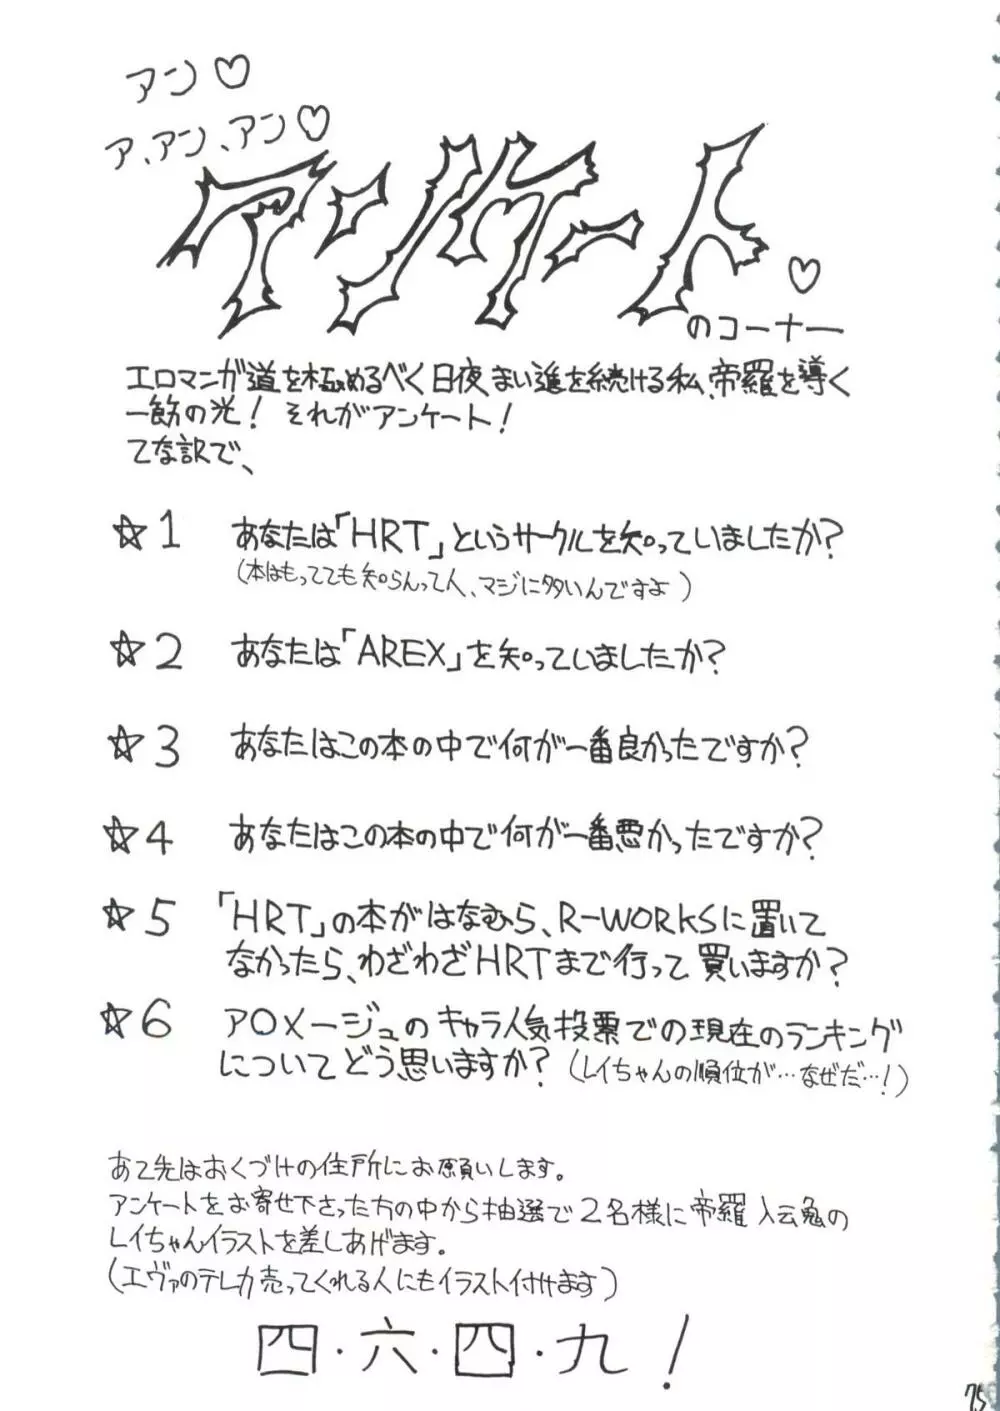 アン♡
ア、アン、アン♡
アンケート♡
のコーナー
エロマンガ道を極めるべく日夜まい進を続ける私、帝羅を導く
一筋の光！ それがアンケート！
てな訳で、
☆1 あなたは「HRT」というサークルを知っていましたか？
（本はもってても知らんって人、マジに多いんですよ）
☆2 あなたは「AREX」を知っていましたか？
☆3 あなたはこの本の中で何が一番良かったですか？
☆4 あなたはこの本の中で何が一番悪かったですか？
☆5 「HRT」の本がはなむら、R-WORKSに置いて
なかったら、わざわざHRTまで行って買いますか？
☆6 ア○メージュのキャラ人気投票での現在のランキング
についてどう思いますか？（レイちゃんの順位が…なぜだ…！）
あて先はおくづけの住所にお願いします。
アンケートをお寄せ下さった方の中から抽選で2名様に帝羅入云鬼の
レイちゃんイラストを差しあげます。
（エヴァのテレカ売ってくれる人にもイラスト付けます）
四・六・四・九！
75